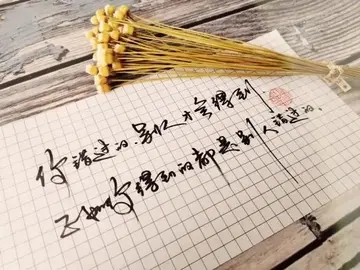 你错过的.别人才会得到.
正如你得到的都是别人错过的.